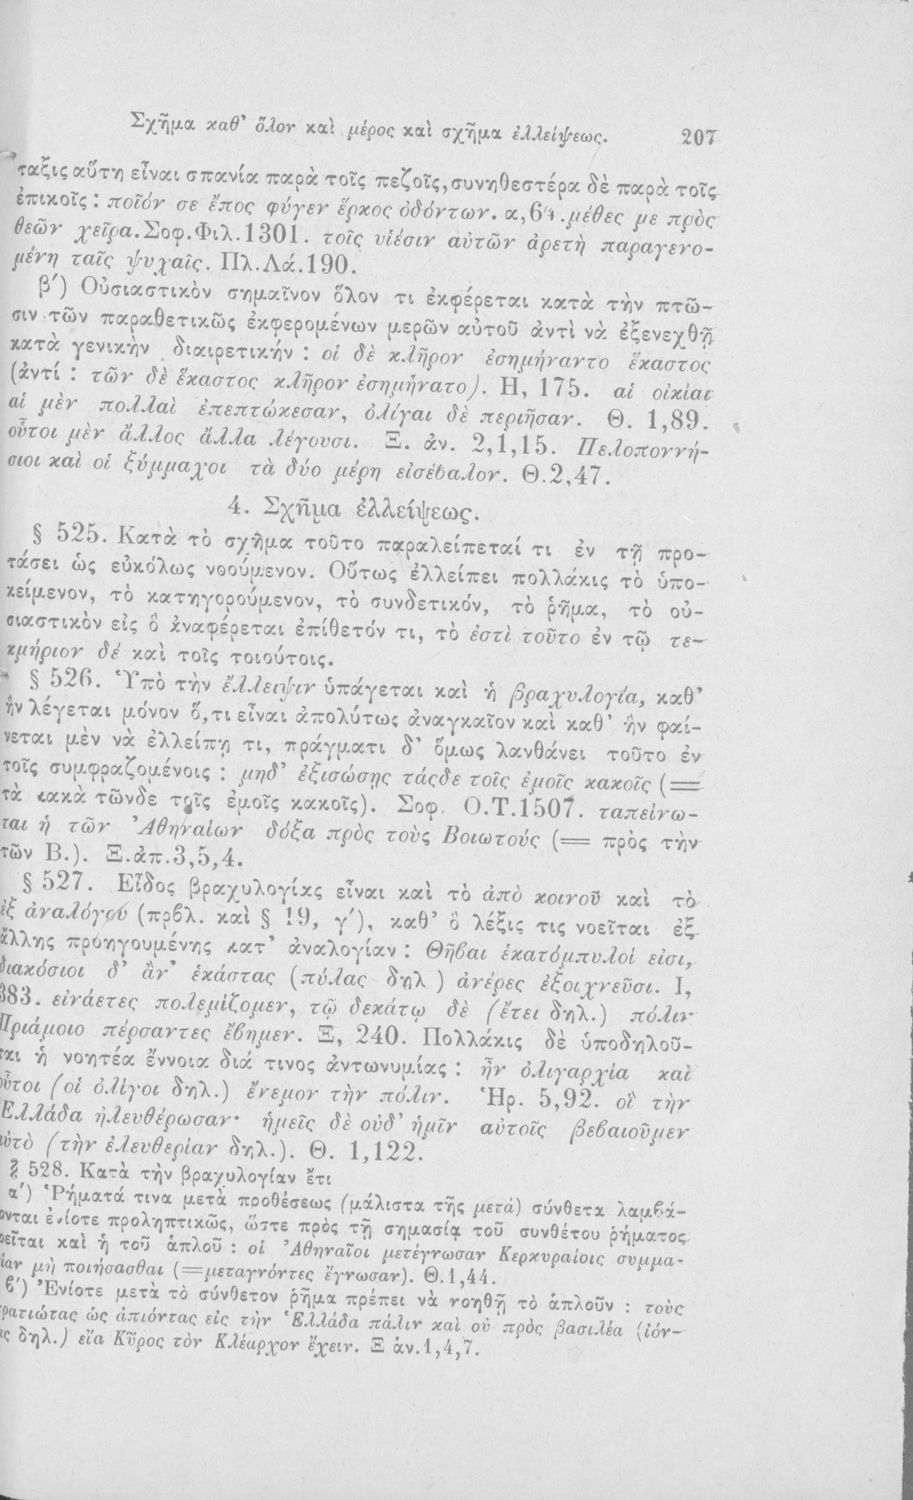 Σχῆμα καθ' ὅλον καὶ μέρος καὶ σχῆμα ἐλλείψεως. 207
ταξις αὕτη εἶναι σπανία παρὰ τοῖς πεζοῖς, συνηθεστέρα δὲ παρὰ τοῖς
ἐπικοῖς : ποῖόν σε ἔπος φύγεν ἕρκος ὀδόντων. α, 64. μέθες με πρὸς
θεῶν χεῖρα. Σοφ. Φιλ. 1301. τοῖς υἱέσιν αὐτῶν ἀρετὴ παραγενο-
μένη ταῖς ψυχαῖς. Πλ. Λά. 190.
β') Οὐσιαστικὸν σημαῖνον ὅλον τι ἐκφέρεται κατὰ τὴν πτῶ-
σιν τῶν παραθετικῶς ἐκφερομένων μερῶν αὐτοῦ ἀντὶ νὰ ἐξενεχθῇ
κατὰ γενικὴν διαιρετικήν : οἱ δὲ κλῆρον ἐσημήναντο ἕκαστος
(ἀντί : τῶν δὲ ἕκαστος κλῆρον ἐσημήνατο). Η, 175. αἱ οἰκίαι
αἱ μὲν πολλαὶ ἐπεπτώκεσαν, ὀλίγαι δὲ περιῆσαν. Θ. 1,89.
οὗτοι μὲν ἄλλος ἄλλα λέγουσι. Ξ. ἀν. 2,1,15. Πελοποννή-
σιοι καὶ οἱ ξύμμαχοι τὰ δύο μέρη εἰσέβαλον. Θ. 2,47.
4. Σχῆμα ἐλλείψεως.
§ 525. Κατὰ τὸ σχῆμα τοῦτο παραλείπεταί τι ἐν τῇ προ-
τάσει ὡς εὐκόλως νοούμενον. Οὕτως ἐλλείπει πολλάκις τὸ ὑπο-
κείμενον, τὸ κατηγορούμενον, τὸ συνδετικόν, τὸ ῥῆμα, τὸ οὐ-
σιαστικὸν εἰς ὃ ἀναφέρεται ἐπίθετόν τι, τὸ ἐστὶ τοῦτο ἐν τῷ τε-
κμήριον δέ καὶ τοῖς τοιούτοις.
§ 526. Ὑπὸ τὴν ἔλλειψιν ὑπάγεται καὶ ἡ βραχυλογία, καθ'
ἣν λέγεται μόνον ὅ,τι εἶναι ἀπολύτως ἀναγκαῖον καὶ καθ' ἣν φαί-
νεται μὲν νὰ ἐλλείπῃ τι, πράγματι δ' ὅμως λανθάνει τοῦτο ἐν
τοῖς συμφραζομένοις : μηδ' ἐξισώσῃς τάςδε τοῖς ἐμοῖς κακοῖς (=
τὰ κακὰ τῶνδε τοῖς ἐμοῖς κακοῖς). Σοφ. Ο.Τ. 1507. ταπείνω-
ται ἡ τῶν Ἀθηναίων δόξα πρὸς τοὺς Βοιωτούς (= πρὸς τὴν
τῶν Β.). Ξ. ἀπ. 3,5,4.
§ 527. Εἶδος βραχυλογίας εἶναι καὶ τὸ ἀπὸ κοινοῦ καὶ τὸ
ἐξ ἀναλόγου (πρβλ. καὶ § 19, γ'), καθ' ὃ λέξις τις νοεῖται ἐξ
ἄλλης προηγουμένης κατ' ἀναλογίαν : Θῆβαι ἑκατόμπυλοί εἰσι,
διακόσιοι δ' ἂν' ἑκάστας (πύλας δηλ ) ἀνέρες ἐξοιχνεῦσι. Ι,
383. εἰνάετες πολεμίζομεν, τῷ δεκάτῳ δὲ (ἔτει δηλ.) πόλιν
Πριάμοιο πέρσαντες ἔβημεν. Ξ, 240. Πολλάκις δὲ ὑποδηλοῦ-
ται ἡ νοητέα ἔννοια διά τινος ἀντωνυμίας : ἦν ὀλιγαρχία καὶ
οὗτοι (οἱ ὀλίγοι δηλ.) ἔνεμον τὴν πόλιν. Ἡρ. 5,92. οἳ τὴν
Ἑλλάδα ἠλευθέρωσαν· ἡμεῖς δὲ οὐδ' ἡμῖν αὐτοῖς βεβαιοῦμεν
αὐτὸ (τὴν ἐλευθερίαν δηλ.). Θ. 1,122.
§ 528. Κατὰ τὴν βραχυλογίαν ἔτι
α') Ῥήματά τινα μετὰ προθέσεως (μάλιστα τῆς μετά) σύνθετα λαμβά-
νονται ἐνίοτε προληπτικῶς, ὥστε πρὸς τῇ σημασίᾳ τοῦ συνθέτου ῥήματος
νοεῖται καὶ ἡ τοῦ ἁπλοῦ : οἱ Ἀθηναῖοι μετέγνωσαν Κερκυραίοις συμμα-
χίαν μὴ ποιήσασθαι (=μεταγνόντες ἔγνωσαν). Θ. 1,44.
β') Ἐνίοτε μετὰ τὸ σύνθετον ῥῆμα πρέπει νὰ νοηθῇ τὸ ἁπλοῦν : τοὺς
στρατιώτας ὡς ἀπιόντας εἰς τὴν Ἑλλάδα πάλιν καὶ οὐ πρὸς βασιλέα (ἰόν-
τας δηλ.) εἴα Κῦρος τὸν Κλέαρχον ἔχειν. Ξ ἀν. 1,4,7.